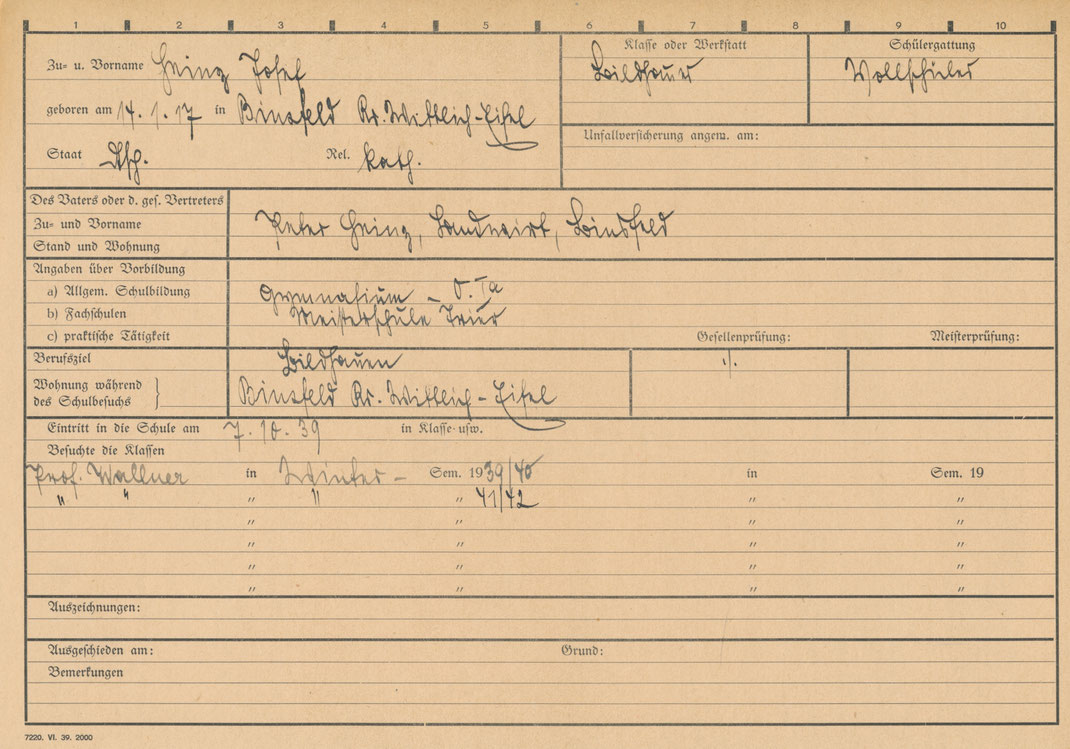 1 2 3 4 5 6 7 8 9 10
Zu= u. Vorname Heinz Josef
Klasse oder Werkstatt Bildhauer
Schülergattung Vollschüler
geboren am 14.1.17 in Binsfeld Kr. Wittlich-Eifel
Unfallversicherung angem. am:
Staat Dtsch. Rel. kath.
Des Vaters oder d. ges. Vertreters
Zu= und Vorname Peter Heinz, Landwirt, Binsfeld
Stand und Wohnung
Angaben über Vorbildung
a) Allgem. Schulbildung Gymnasium - O. Ia
b) Fachschulen Meisterschule Trier
c) praktische Tätigkeit Gesellenprüfung: Meisterprüfung:
Berufsziel Bildhauer ./.
Wohnung während
des Schulbesuchs } Binsfeld Kr. Wittlich-Eifel
Eintritt in die Schule am 7.10.39 in Klasse usw.
Besuchte die Klassen
Prof. Wallner in Winter- Sem. 1939/40 in Sem. 19
" " " " " 41/42 " "
" " " "
" " " "
" " " "
" " " "
Auszeichnungen:
Ausgeschieden am: Grund:
Bemerkungen
7220. VI. 39. 2000